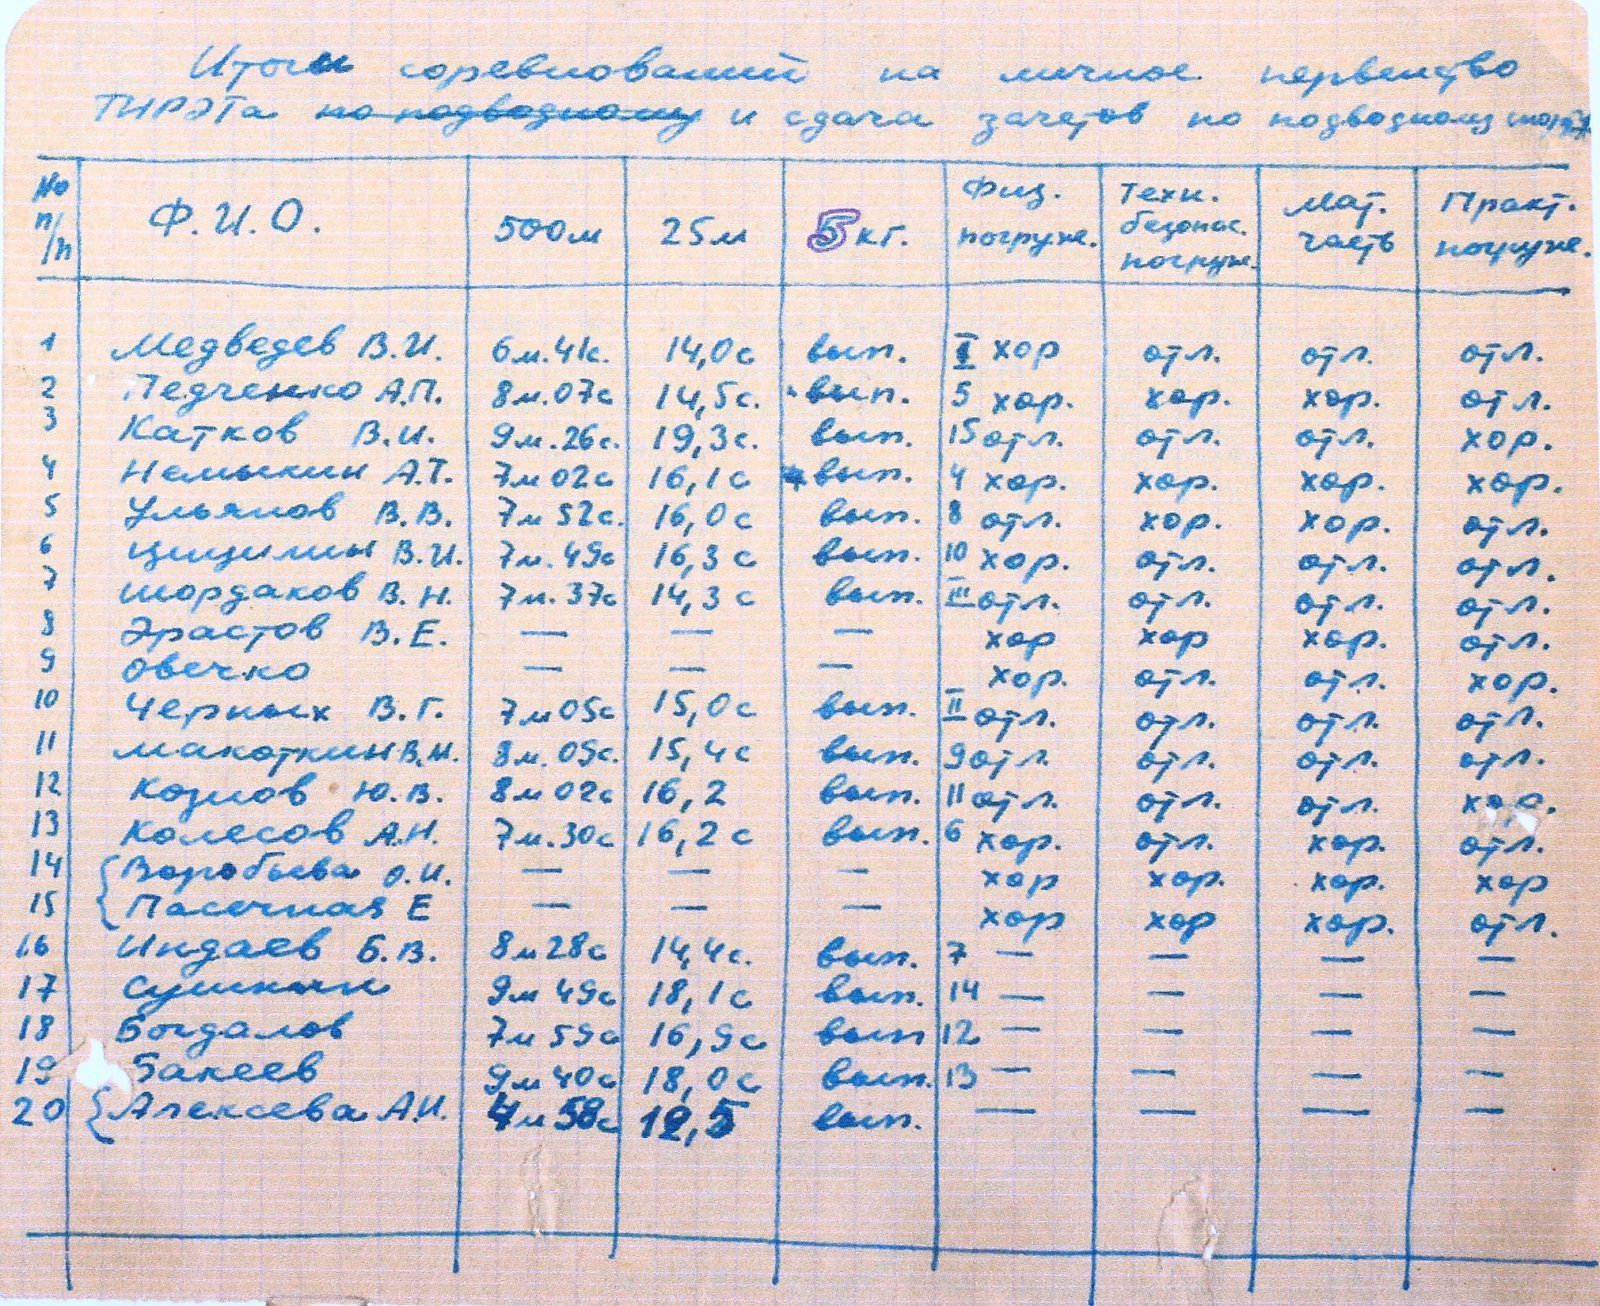 Итоги соревнований на личное первенство
ТИРЭТа по подводному и сдача зачетов по подводному спорту
No п/п Ф.И.О. 500м 25м 5 кг. Физ. погруж. Техн. безопас. погруж. Мат. часть Практ. погруж.
1 Медведев В.И. 6м.41с. 14,0с вып. I хор отл. отл. отл.
2 Педченко А.П. 8м.07с 14,5с. вып. 5 хор. хор. хор. отл.
3 Катков В.И. 9м.26с. 19,3с. вып. 15 отл. отл. отл. хор.
4 Немыкин А.Т. 7м02с 16,1с вып. 4 хор. хор. хор. хор.
5 Ульянов В.В. 7м52с. 16,0с вып. 8 отл. хор. хор. отл.
6 Цицилин В.И. 7м.49с 16,3с вып. 10 хор. отл. отл. отл.
7 Шордаков В.Н. 7м.37с 14,3с вып. III отл. отл. отл. отл.
8 Эрастов В.Е. — — — хор хор хор. отл.
9 Овечко — — — хор. отл. отл. хор.
10 Черных В.Г. 7м05с 15,0с вып. II отл. отл. отл. отл.
11 Макоткин В.Н. 8м.09с. 15,4с вып. 9 отл. отл. отл. отл.
12 Козлов Ю.В. 8м02с 16,2 вып. 11 отл. отл. отл. хор.
13 Колесов А.Н. 7м.30с 16,2с вып. 6 хор. отл. хор. отл.
14 Воробьева О.И. — — — хор хор. хор. хор
15 Пасечная Е — — — хор хор хор. отл.
16 Индаев Б.В. 8м28с 14,4с. вып. 7 — — — —
17 Сушкин 9м49с 18,1с вып. 14 — — — —
18 Богдалов 7м59с 16,9с вып 12 — — — —
19 Бакеев 9м40с 18,0с вып. 13 — — — —
20 Алексеева А.И. 4м58с 12,5 вып. — — — —